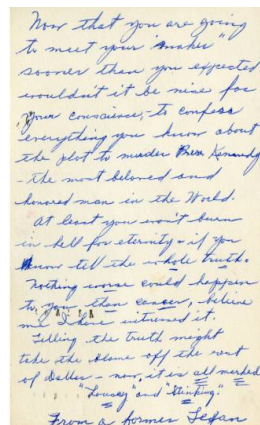 Now that you are going
to meet your "maker"
sooner than you expected
wouldn't it be nice for
your conscience, to confess
everything you know about
the plot to murder Pres Kennedy
- the most beloved and
honored man in the World.
At least you won't burn
in hell for eternity - if you
know tell the whole truth.
Nothing worse could happen
to you than cancer, believe
me I have witnessed it.
Telling the truth might
take the blame off the rest
of Dallas - now, it is all marked
"Lousey" and "Stinking."
From a former Texan